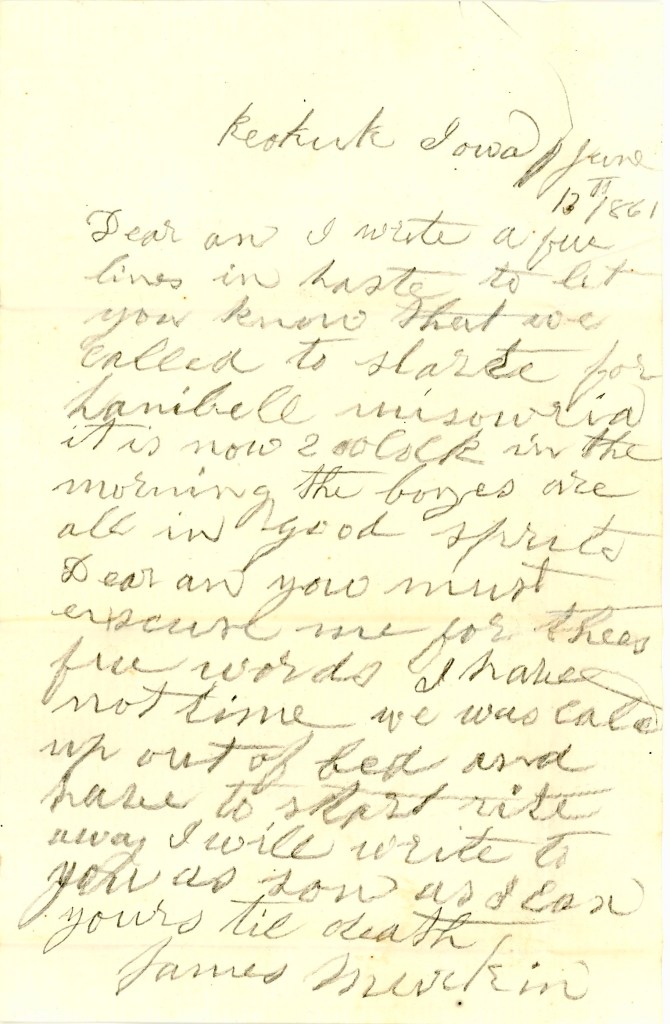 Keokuk Iowa June
13 th 1861
Dear an I write a few
lines in haste to let
you know that we
called to starte for
hanibell misowria
it is now 2 oClock in the
morning the boyes are
all in good sprits
Dear an you must
excuse me for thees
few words I have
not time we was cald
up out of bed and
have to start rite
away I will write to
you as son as I can
yours til death
James